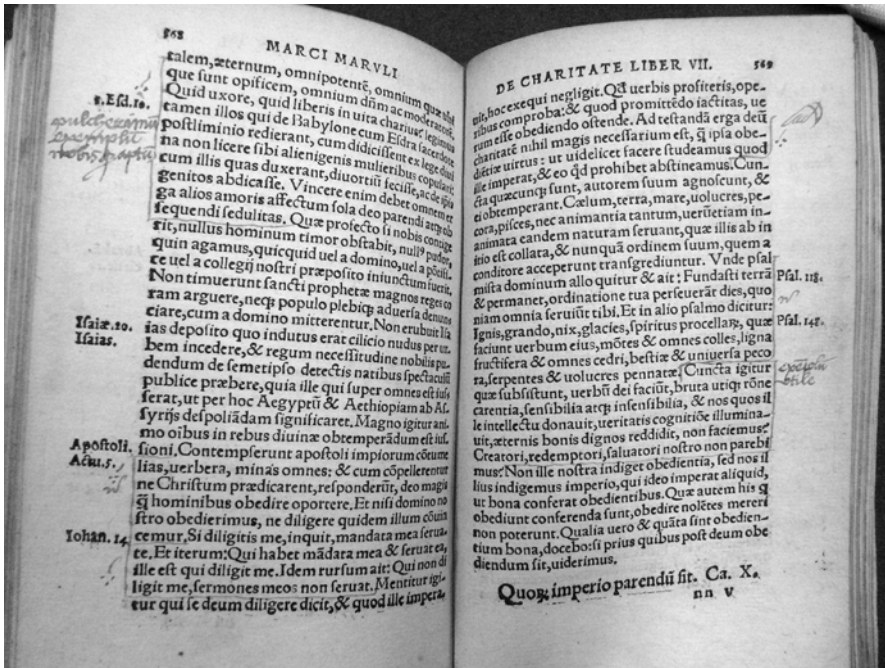 568
MARCI MARVLI
talem, æternum, omnipotentē, omnium quæ ubi
que sunt opificem, omnium dñm ac moderatorē.
Quid uxore, quid liberis in uita charius? legimus
tamen illos qui de Babylone cum Esdra sacerdote
postliminio redierant, cum didicissent ex lege diui
na non licere sibi alienigenis mulieribus copulari;
cum illis quas duxerant, diuortiū fecisse, ac de ipsis
genitos abdicasse. Vincere enim debet omnem er
ga alios amoris affectum sola deo parendi atqꝫ ob
sequendi sedulitas. Quæ profecto si nobis contige
rit, nullus hominum timor obstabit, null⁹ pudor,
quin agamus, quicquid uel a domino, uel a
ce uel a collegij nostri præposito iniunctum fuerit.
Non timuerunt sancti prophetæ magnos reges co
ram arguere, neqꝫ populo plebiqꝫ aduersa denun
ciare, cum a domino mitterentur. Non erubuit Isa
ias deposito quo indutus erat cilicio nudus per ur
bem incedere, & regum necessitudine nobilis pu
dendum de semetipso detectis natibus spectaculū
publice præbere, quia ille qui super omnes est ius
serat, ut per hoc Aegyptū & Aethiopiam ab As
syrijs despoliādam significaret. Magno igitur ani
mo oībus in rebus diuinæ obtemperādum est ius
sioni. Contempserunt apostoli impiorum cōtume
lias, uerbera, minas omnes: & cum cōpellerentur
ne Christum prædicarent, responderūt, deo magis
q̄ hominibus obedire oportere. Et nisi domino no
stro obedierimus, ne diligere quidem illum cōuin
cemur. Si diligitis me, inquit, mandata mea serua
te. Et iterum: Qui habet mādata mea & seruat ea,
ille est qui diligit me. Idem rursum ait: Qui non di
ligit me, sermones meos non seruat. Mentitur igi
tur qui se deum diligere dicit, & quod ille impera,
1. Esd. 10.
Isaiæ. 20.
Isaias.
Apostoli.
Actu. 5.
Iohan. 14
DE CHARITATE LIBER VII. 569
uit, hoc exequi negligit. Qđ uerbis profiteris, ope-
ribus comproba: & quod promittēdo iactitas, ue
rum esse obediendo ostende. Ad testandā erga deū
charitatē nihil magis necessarium est, q̄ ipsa obe-
diētiæ uirtus: ut uidelicet facere studeamus quod
ille imperat, & eo qđ prohibet abstineamus. Cun-
cta quæcunqꝫ sunt, autorem suum agnoscunt, &
ei obtemperant. Cælum, terra, mare, uolucres, pe-
cora, pisces, nec animantia tantum, uerūetiam in-
animata eandem naturam seruant, quæ illis ab in
itio est collata, & nunquā ordinem suum, quem a
conditore acceperunt transgrediuntur. Vnde psal
mista dominum allo quitur & ait: Fundasti terrā
& permanet, ordinatione tua perseuerāt dies, quo
niam omnia seruiūt tibi. Et in alio psalmo dicitur:
Ignis, grando, nix, glacies, spiritus procellaꝝ, quæ
faciunt uerbum eius, mōtes & omnes colles, ligna
fructifera & omnes cedri, bestiæ & uniuersa peco
ra, serpentes & uolucres pennatæ. Cuncta igitur
quæ subsistunt, uerbū dei faciūt, bruta utiqꝫ rōne
carentia, sensibilia atqꝫ insensibilia, & nos quos il
le intellectu donauit, ueritatis cognitiōe illumina-
uit, æternis bonis dignos reddidit, non faciemus?
Creatori, redemptori, saluatori nostro non parebi
mus? Non ille nostra indiget obedientia, sed nos il
lius indigemus imperio, qui ideo imperat aliquid,
ut bona conferat obedientibus. Quæ autem his q
obediunt conferenda sunt, obedire nolētes mereri
non poterunt. Qualia uero & quāta sint obedien-
tium bona, docebo: si prius quibus post deum obe
diendum sit, uiderimus.
Quoꝝ imperio parendū sit. Ca. X.
nn v
Psal. 118.
Psal. 148.